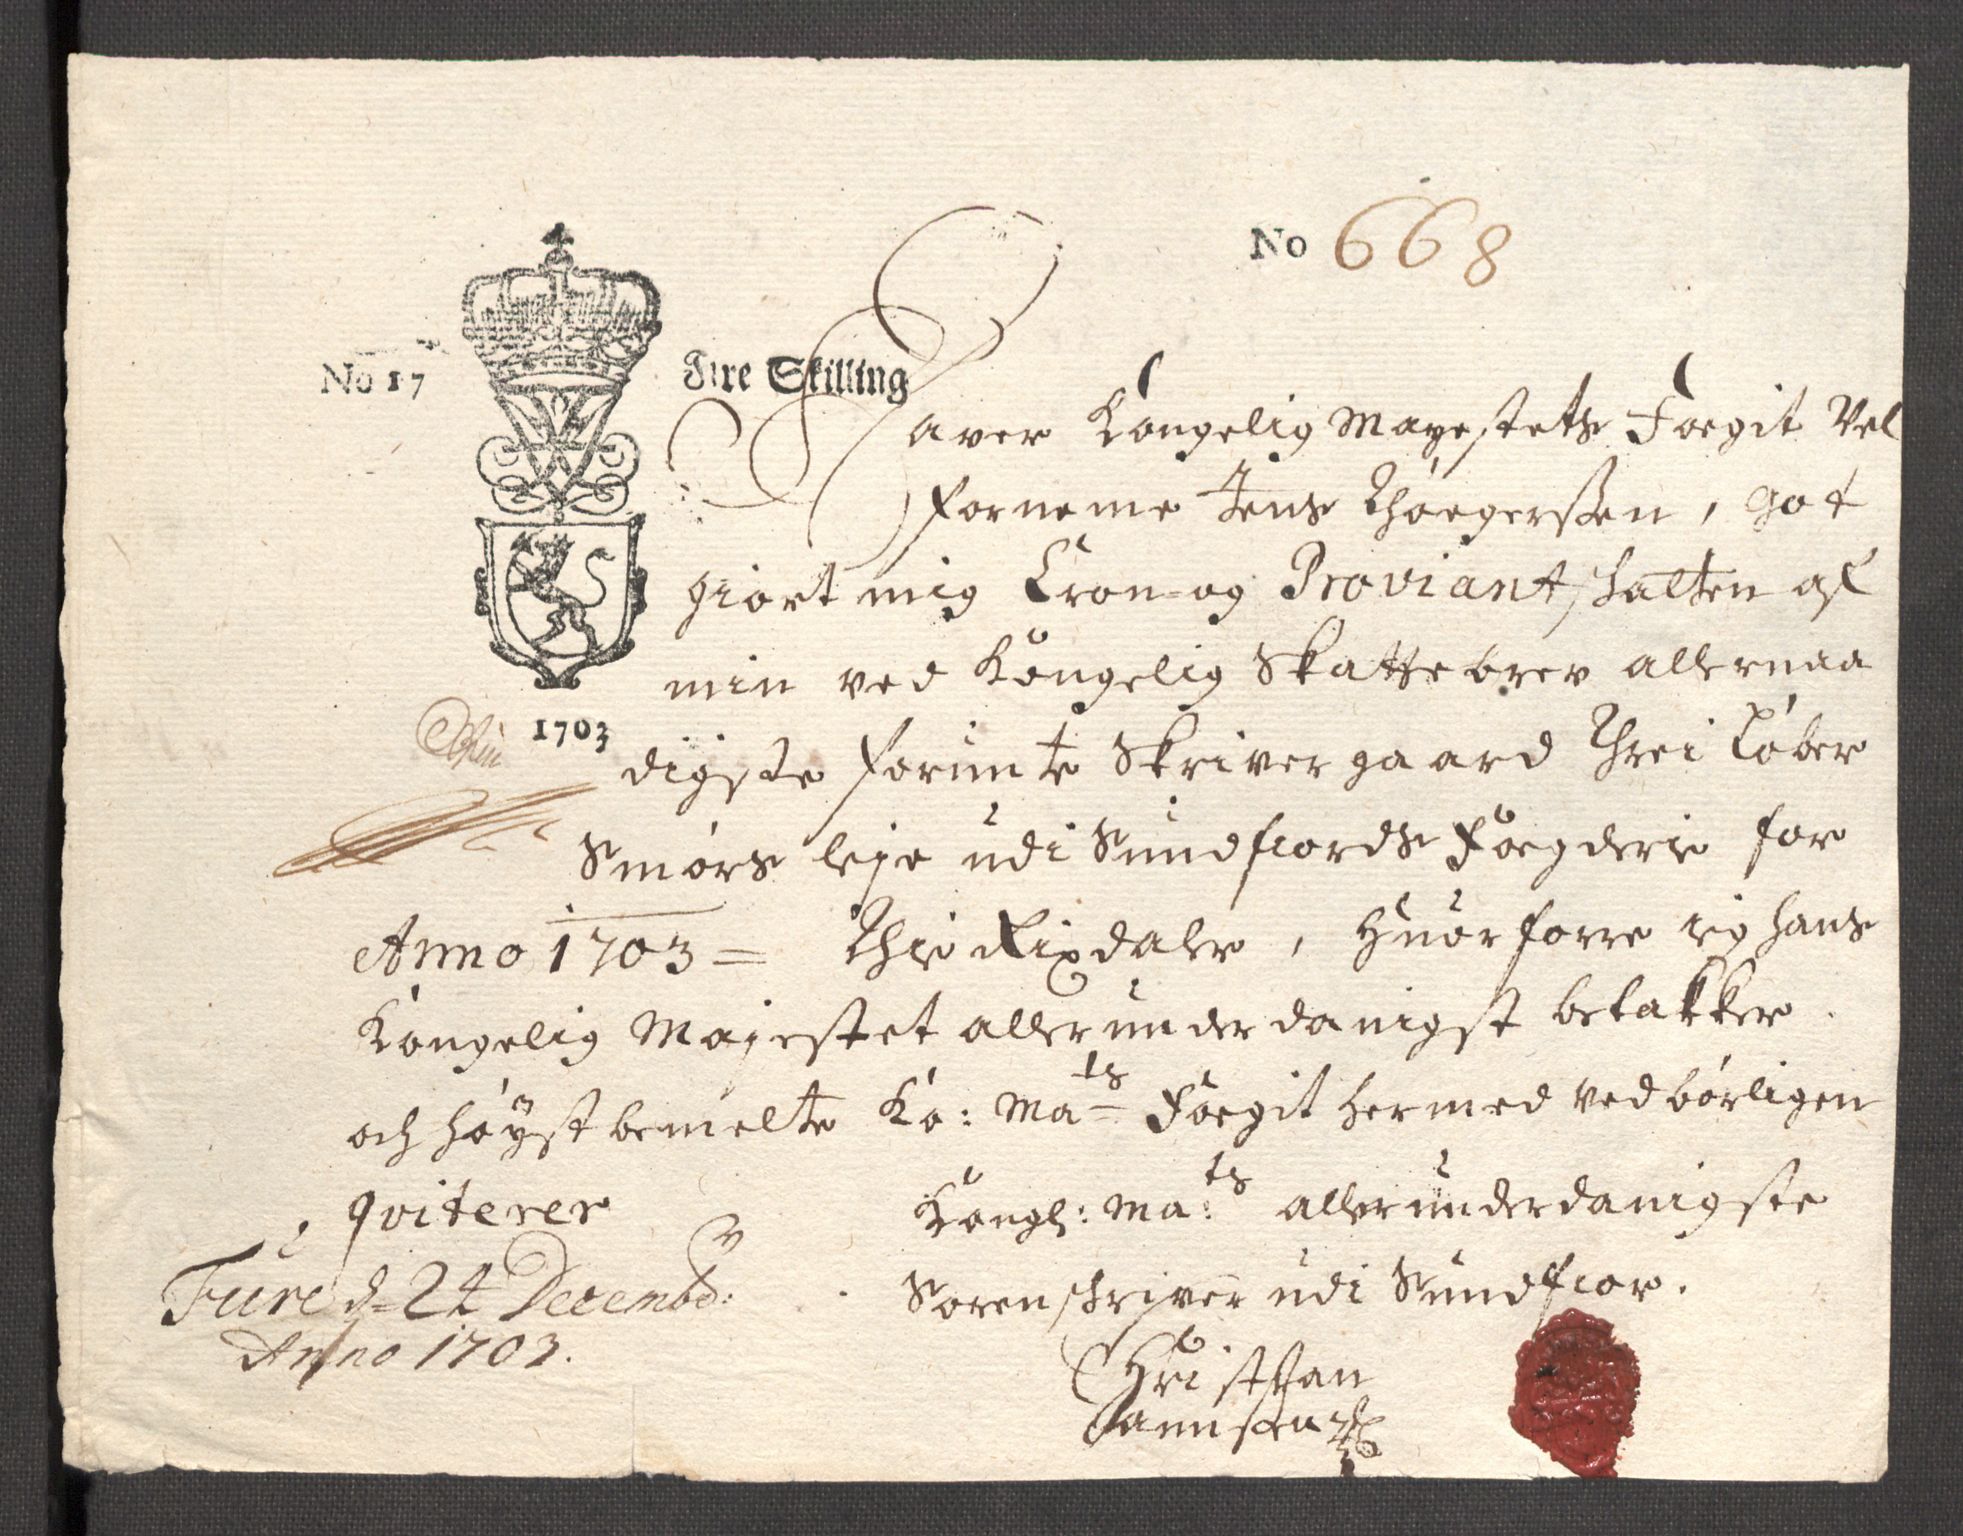 No 668
No 17 Fire Skilling
1703
Haver Kongelig Mayestets Foegit Vel
forneme Jens Thoegerssen, got
giort mig Leon- og Proviantschatten af
min ved Kongelig Skattebrev allernaa
digste forunte Skrivergaard Threi Løber
Smørs leje udi Sundfiords Foegderie for
Anno 1703 = Thre Rixdaler, Huorforre ieg hans
Kongelig Majestet allerunderdanigst betakker.
och høystbemelte Ko: Mats Foegit hermed ved børligen
qviterer
Kongl: Mats allerunderdanigste
Sorenschriver udi Sundfior.
Fure d= 24 Decembr:
Anno 1703.
Christian